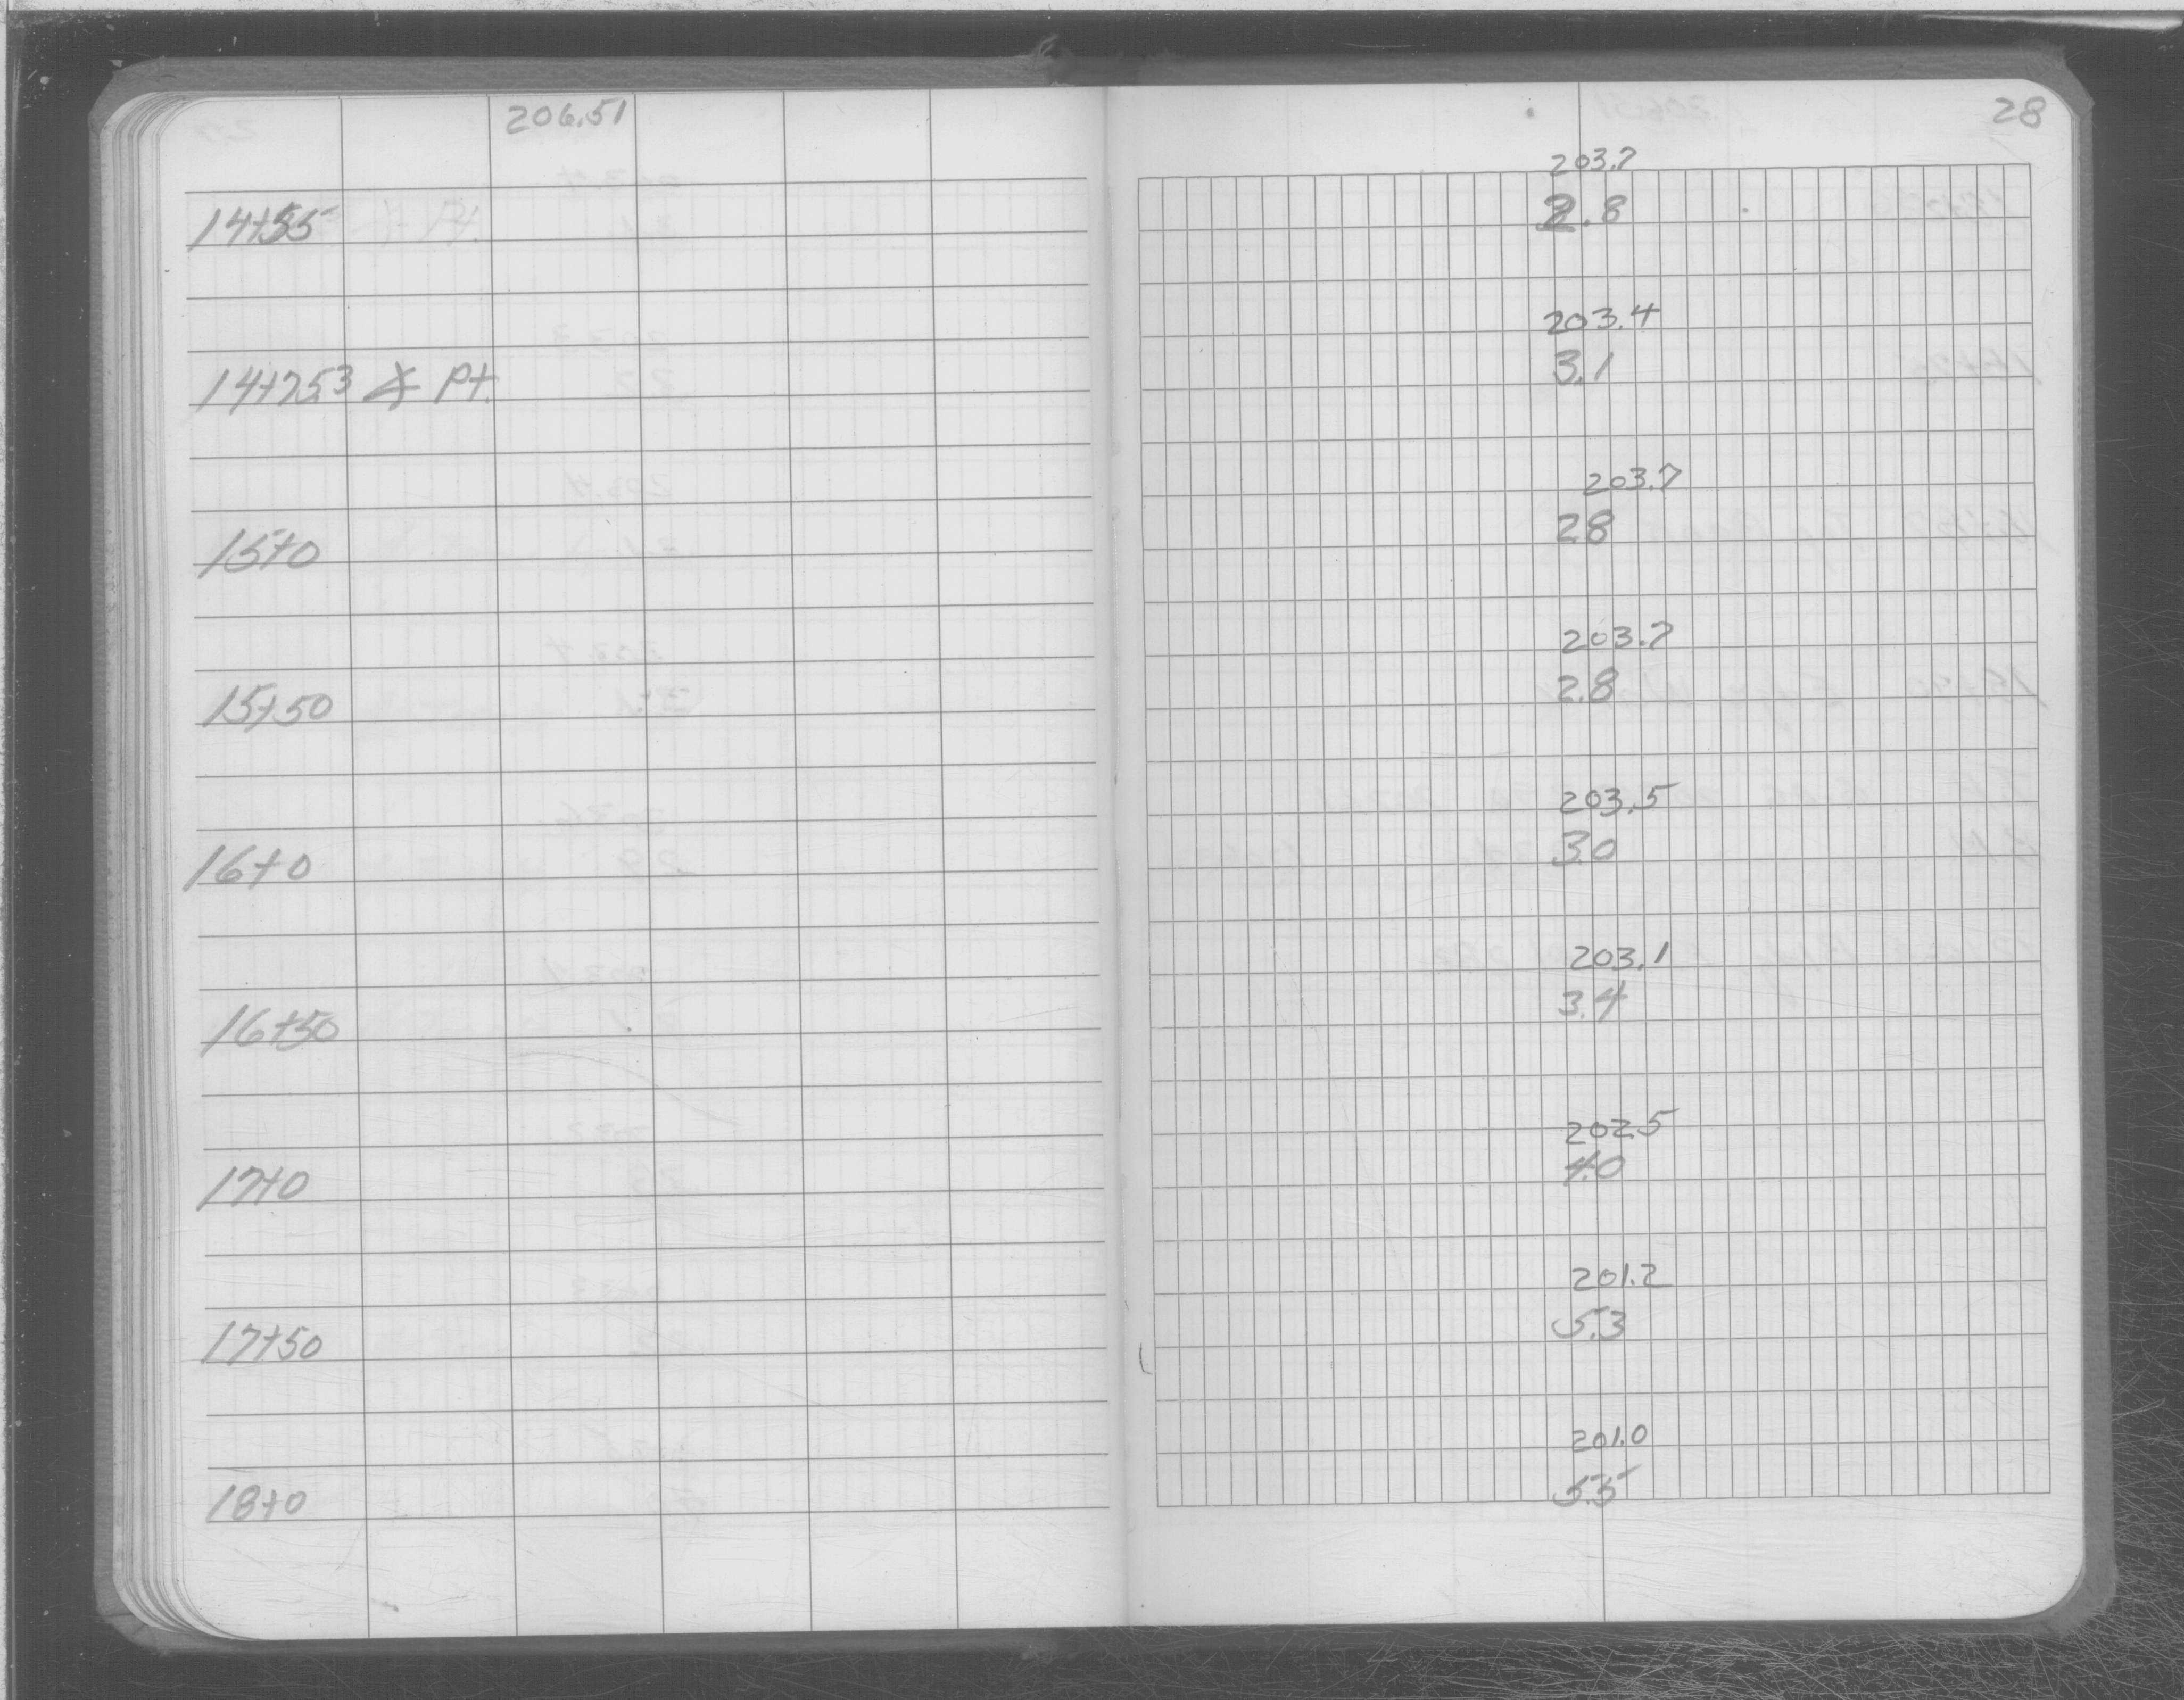 206.51
28
203.7
14+55 2.8
203.4
14+75.3 ∡ Pt. 3.1
203.7
15+0 2.8
203.7
15+50 2.8
203.5
16+0 3.0
203.1
16+50 3.4
202.5
17+0 4.0
201.2
17+50 5.3
201.0
18+0 5.5